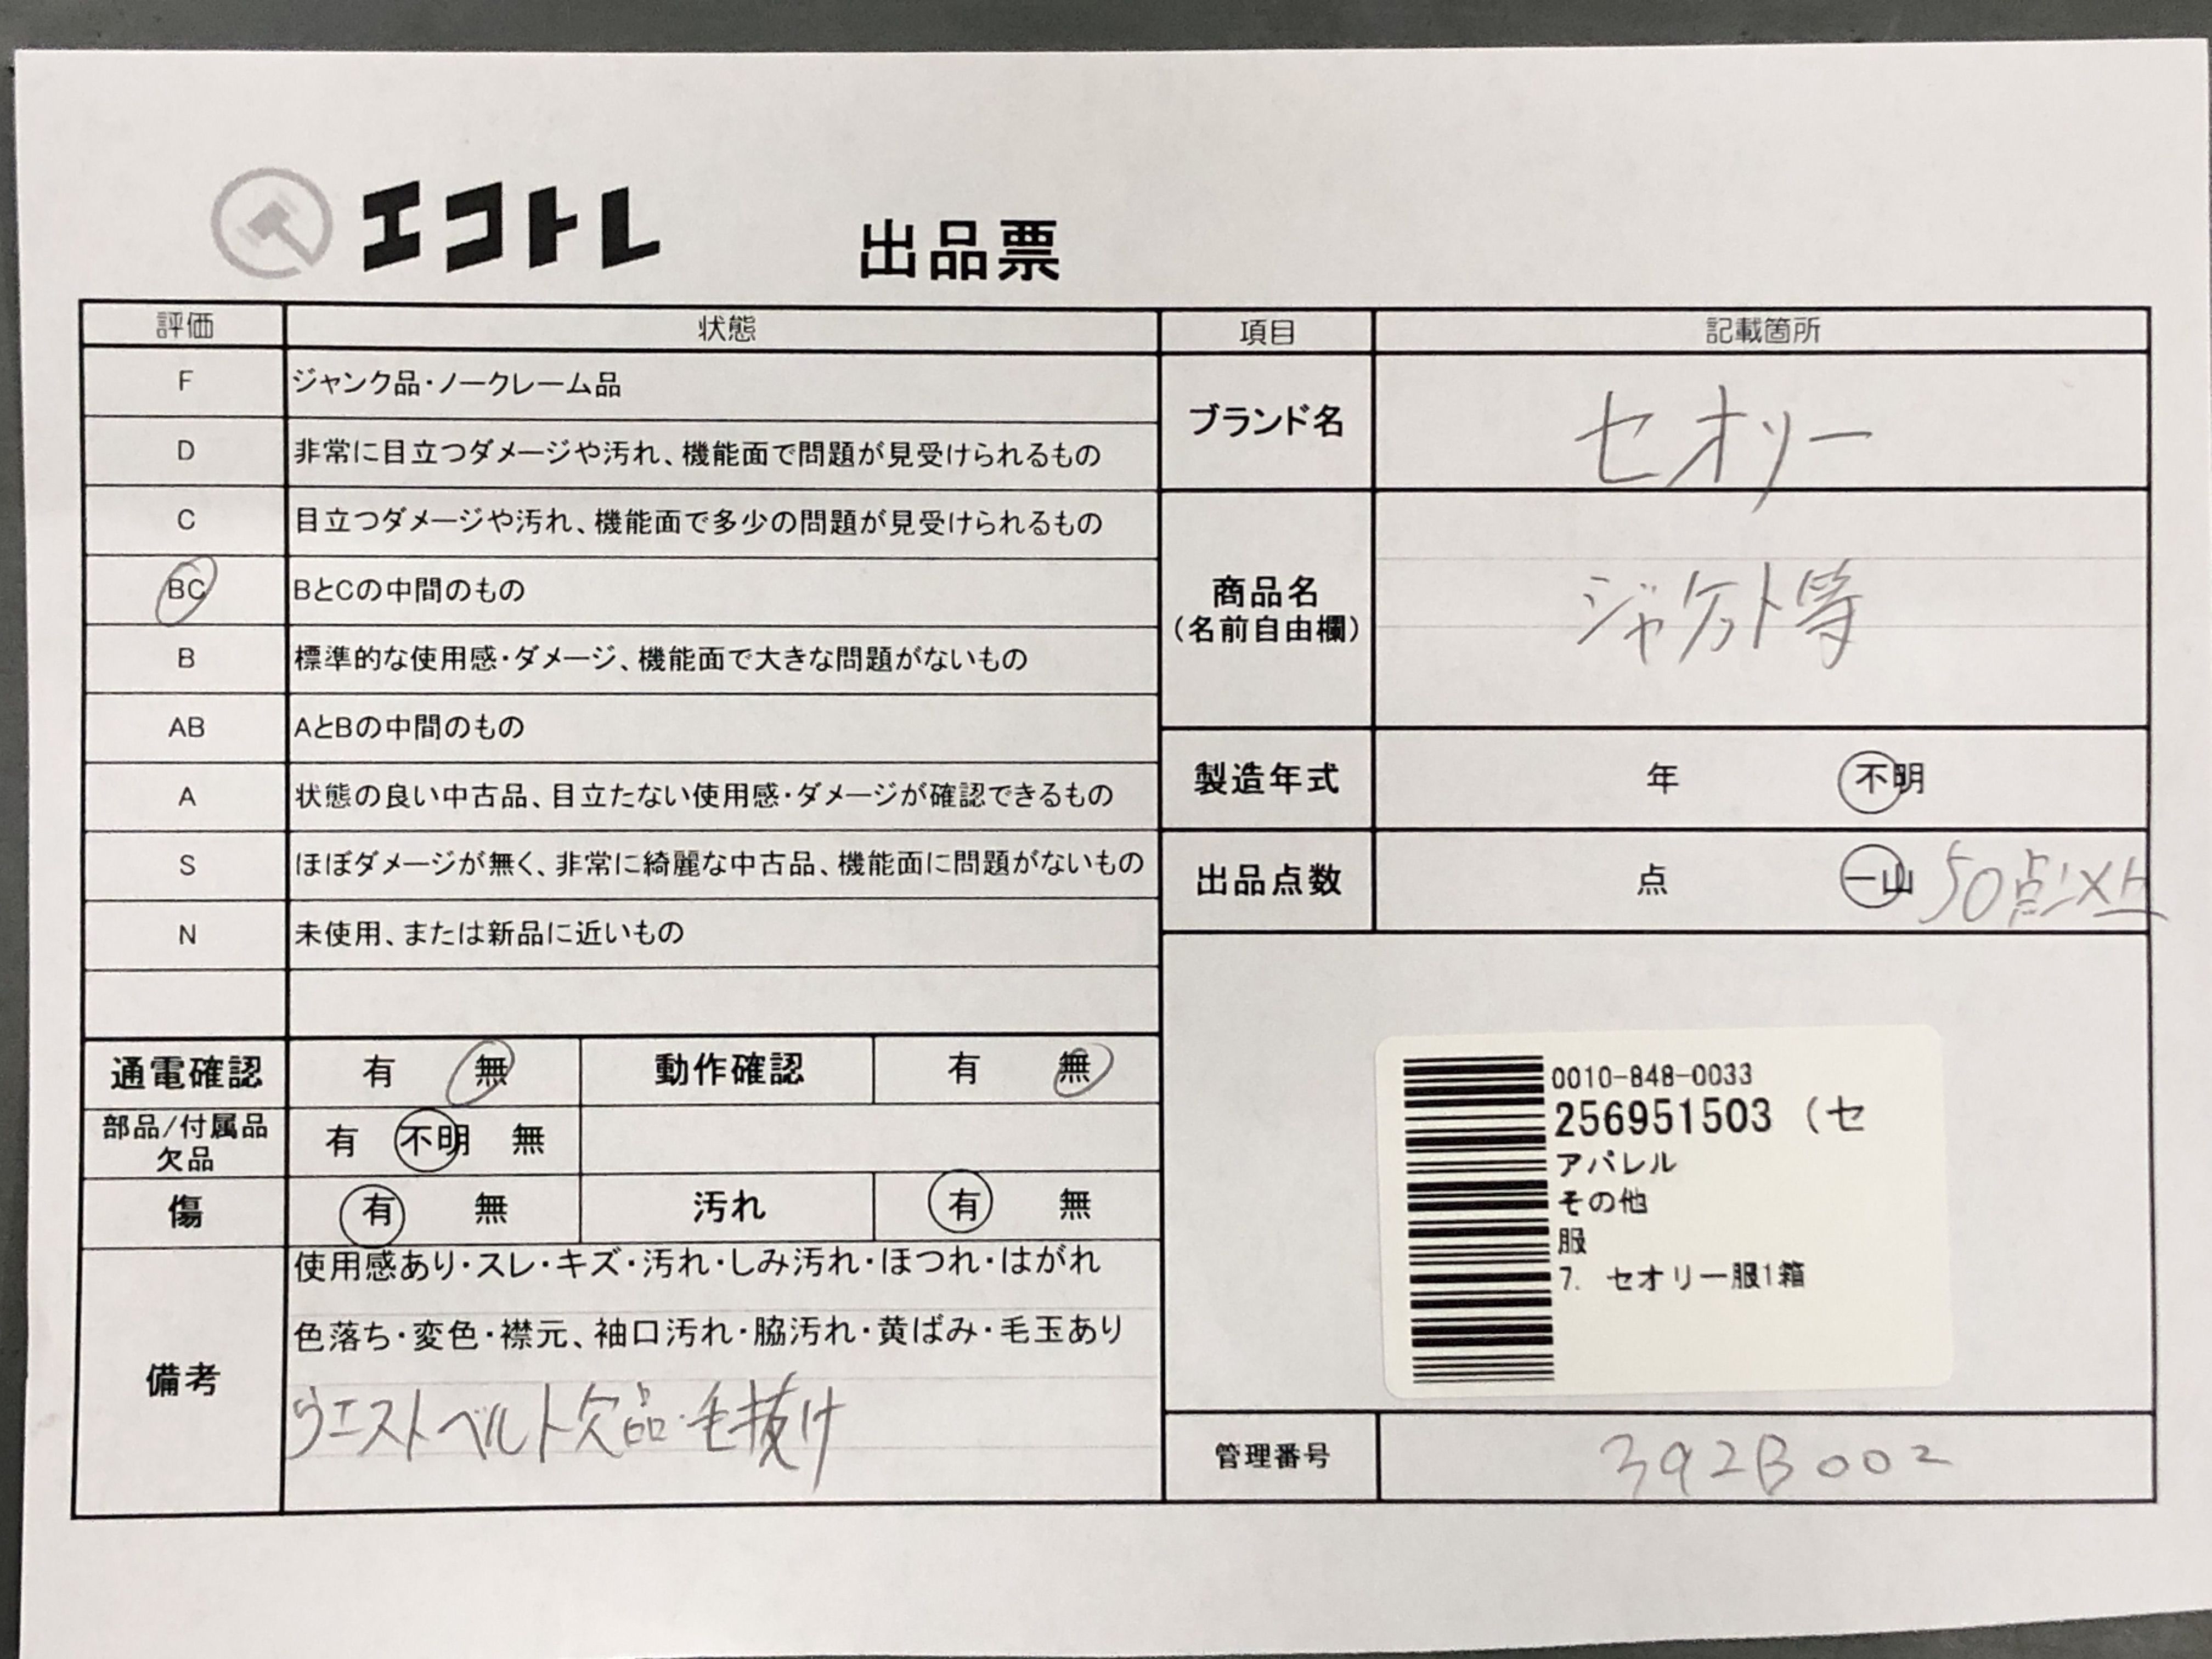 エコトレ 出品票
評価 状態
F ジャンク品・ノークレーム品
D 非常に目立つダメージや汚れ、機能面で問題が見受けられるもの
C 目立つダメージや汚れ、機能面で多少の問題が見受けられるもの
BC BとCの中間のもの
B 標準的な使用感・ダメージ、機能面で大きな問題がないもの
AB AとBの中間のもの
A 状態の良い中古品、目立たない使用感・ダメージが確認できるもの
S ほぼダメージが無く、非常に綺麗な中古品、機能面に問題がないもの
N 未使用、または新品に近いもの
通電確認 有 無 動作確認 有 無
部品/付属品
欠品 有 不明 無
傷 有 無 汚れ 有 無
備考
使用感あり・スレ・キズ・汚れ・しみ汚れ・ほつれ・はがれ
色落ち・変色・襟元、袖口汚れ・脇汚れ・黄ばみ・毛玉あり
ウエストベルト欠品・毛抜け
項目 記載箇所
ブランド名 セオリー
商品名
(名前自由欄) ジャケット等
製造年式 年 不明
出品点数 点 一山 50点以上
0010-848-0033
256951503 (セ
アパレル
その他
服
7. セオリー服1箱
管理番号 392B002